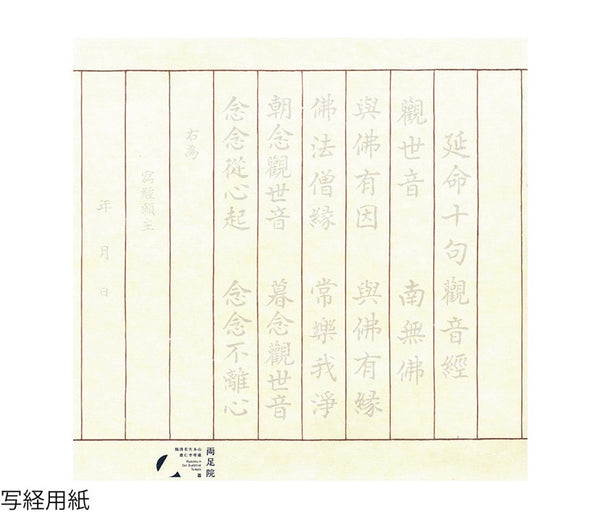 延命十句觀音經
觀世音 南無佛
與佛有因 與佛有縁
佛法僧縁 常樂我淨
朝念觀世音 暮念觀世音
念念從心起 念念不離心
右為
寫經願主
年 月 日
両足院
写経用紙